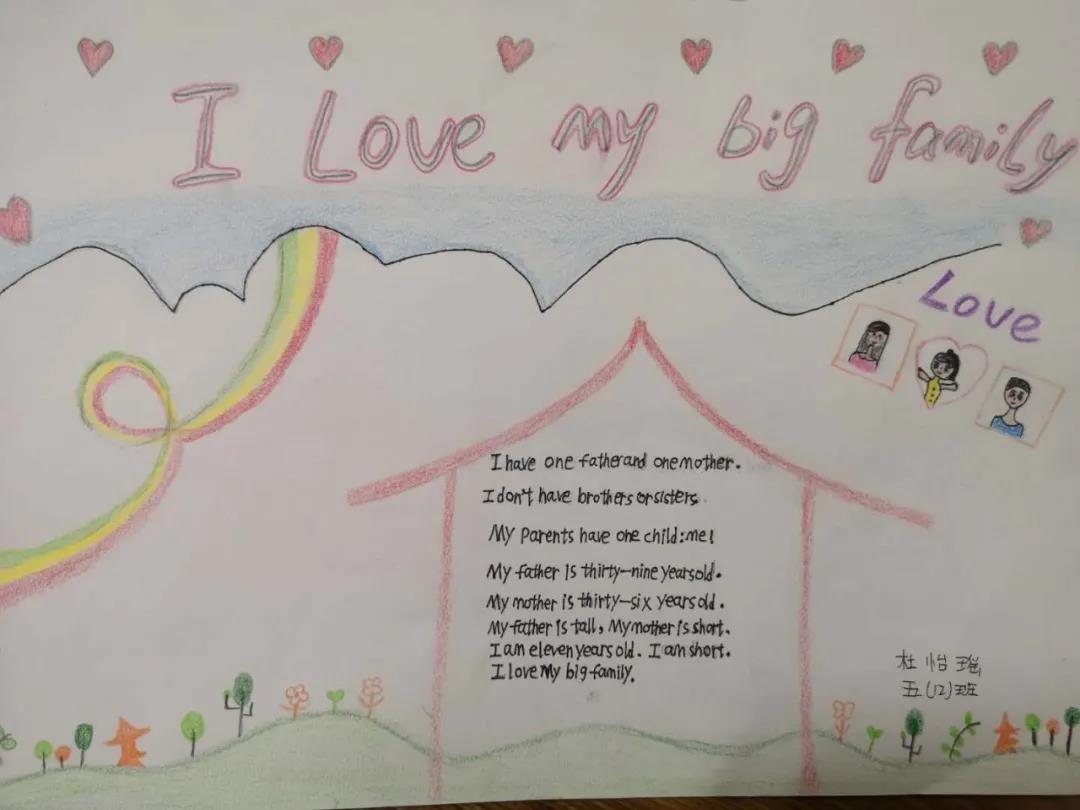 I Love my big family
Love
I have one father and one mother.
I don't have brothers or sisters.
My Parents have one child: me!
My father is thirty-nine years old.
My mother is thirty-six years old.
My father is tall, My mother is short.
I am eleven years old. I am short.
I love My big family.
杜怡瑶
五(12)班